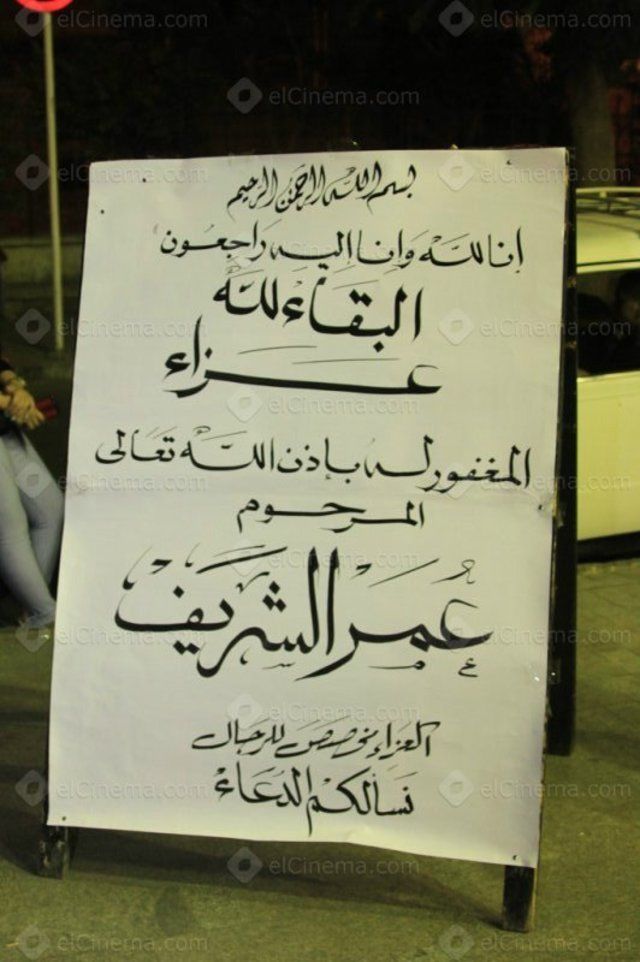 بسم الله الرحمن الرحيم
إنا لله وإنا إليه راجعون
البقاء لله
عزاء
المغفور له بإذن الله تعالى
المرحوم
عمر الشريف
العزاء مخصص للرجال
نسألكم الدعاء
elCinema.com